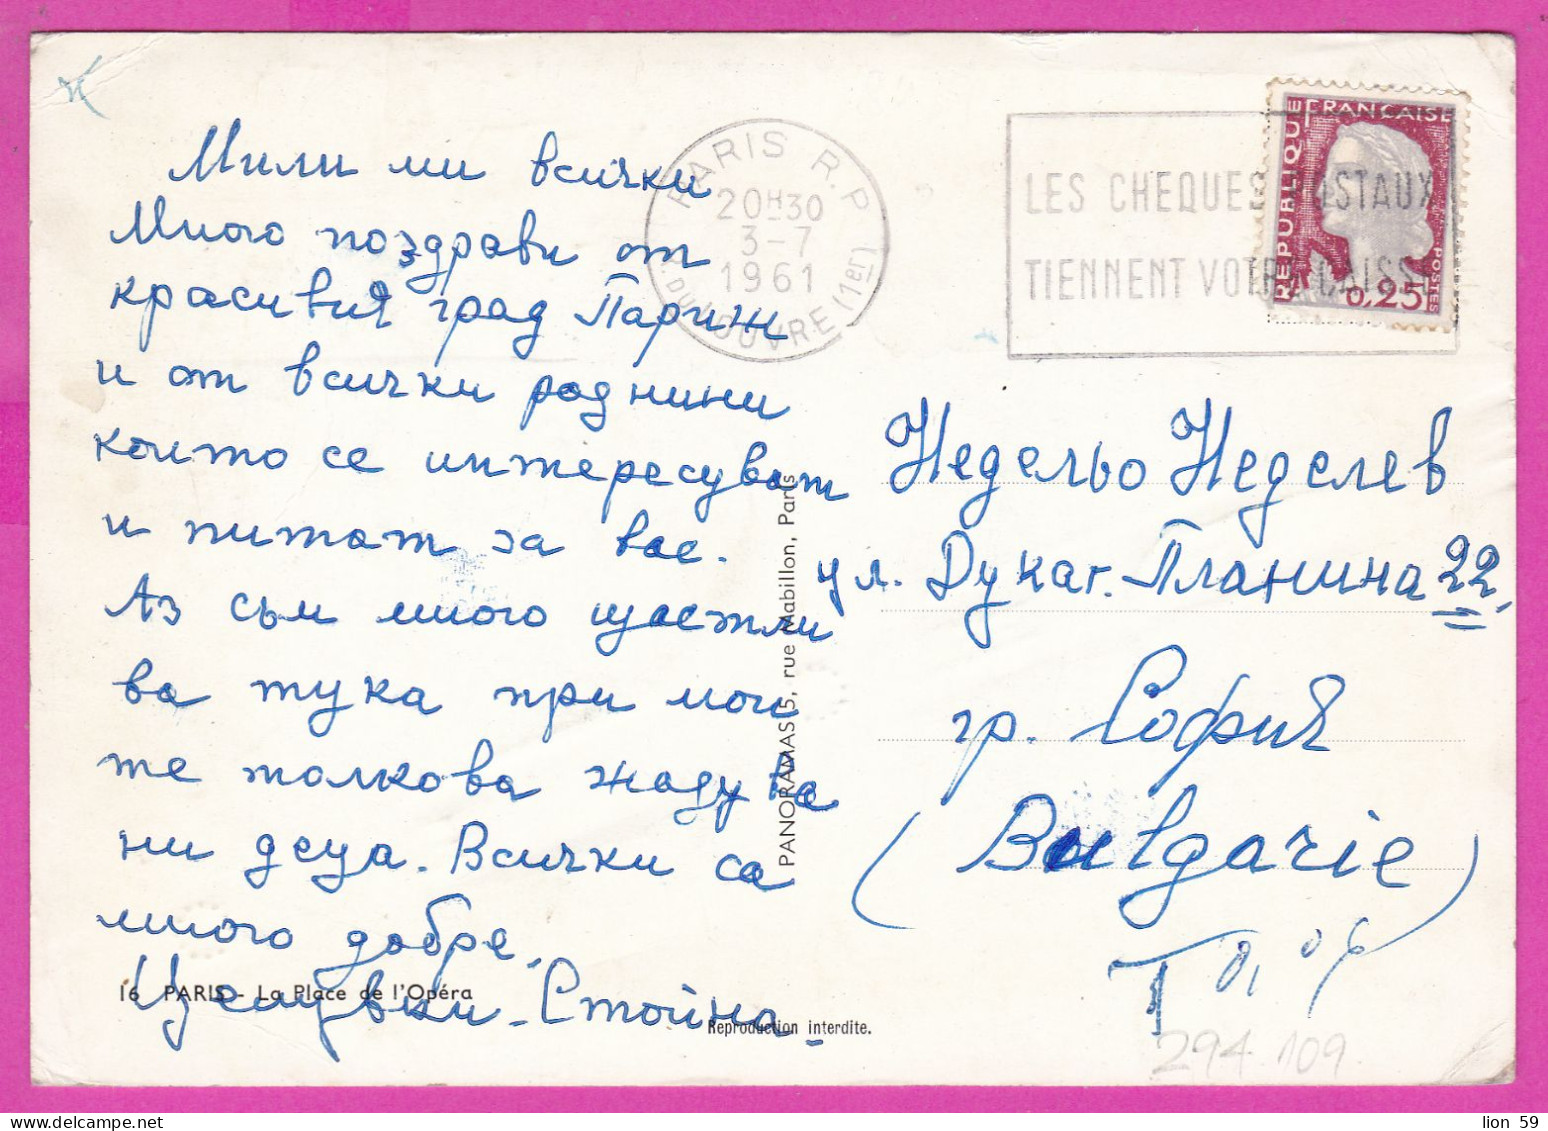 Мили ми всички
Много поздрави от
красивия град Париж
и от всички роднини
които се интересуват
и питат за вас.
Аз съм много щастли
ва тука при мои
те толкова жадува
ни деца. Всички са
много добре.
Целувки. Стойна
16 PARIS - La Place de l'Opéra
Reproduction interdite.
PANORAMAS 5, rue Mabillon, Paris
PARIS R.P.
20H30
3-7
1961
R. DU LOUVRE (1er)
LES CHEQUES POSTAUX
TIENNENT VOTRE CAISSE
REPUBLIQUE FRANÇAISE
0,25
POSTES
Недельо Неделев
ул. Дукат. Планина 22,
гр. София
(Bulgarie)
T 0,06
294 109
lion 59